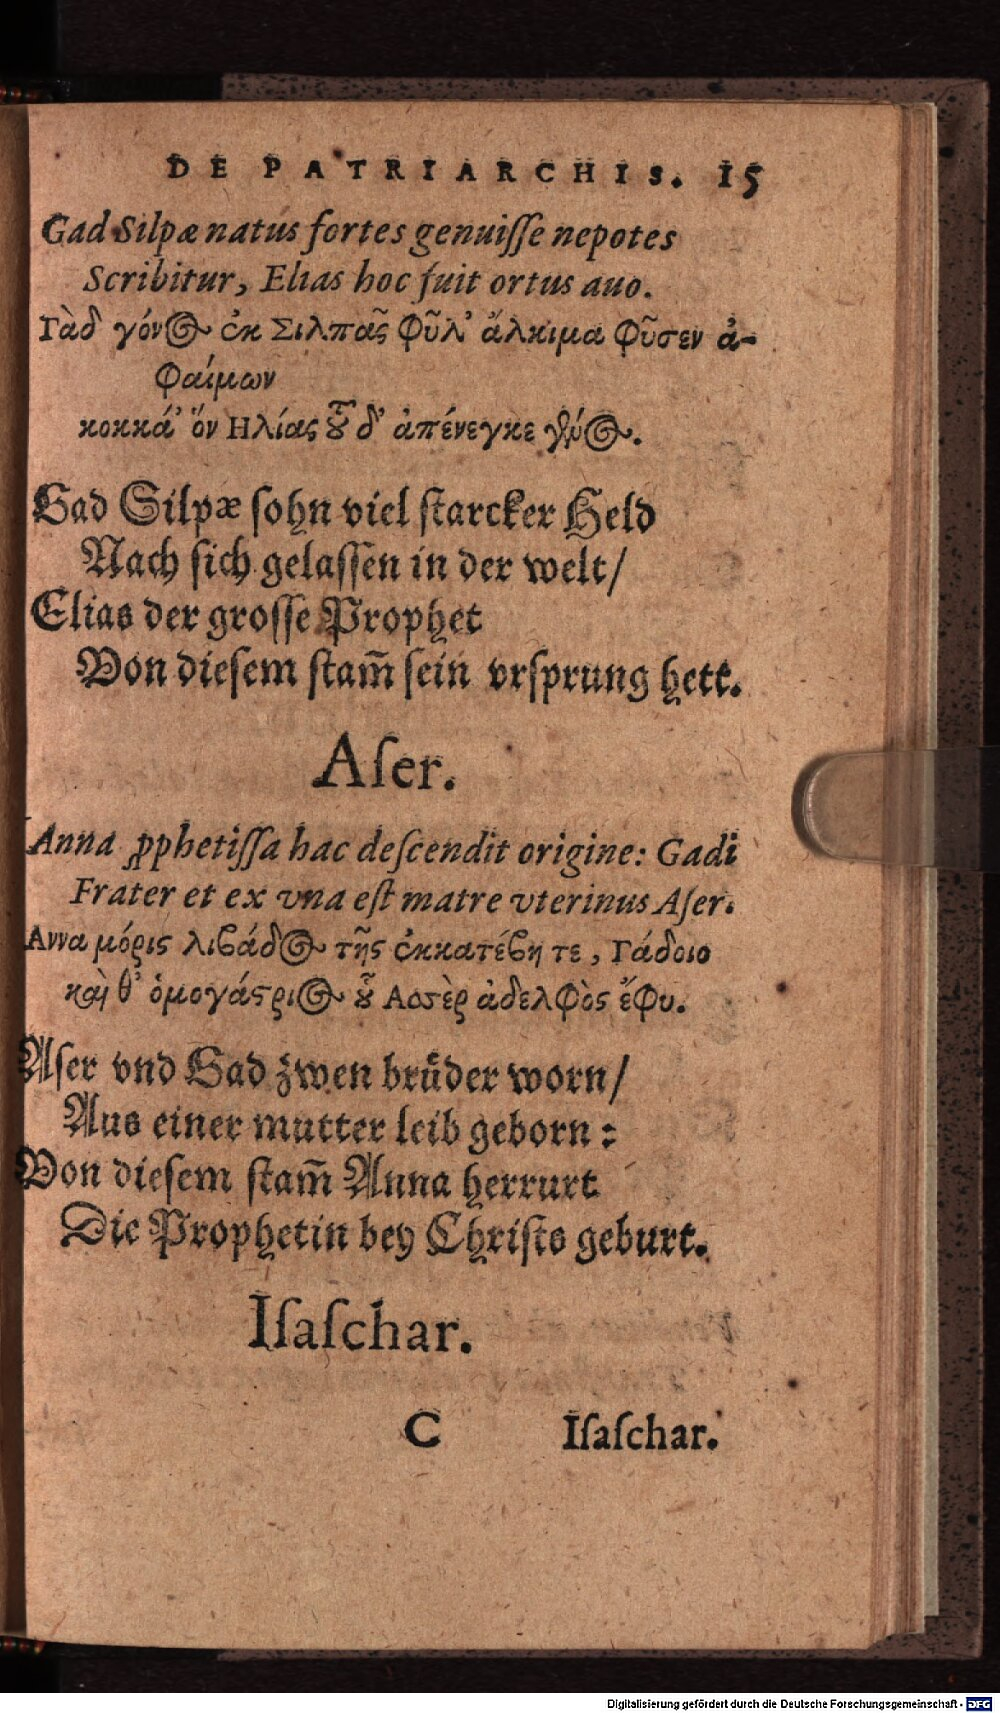 DE PATRIARCHIS. 15
Gad Silpæ natus fortes genuiſſe nepotes
Scribitur, Elias hoc fuit ortus auo.
Γὰδ γόνος ἐκ Σιλπᾶς φῦλ' ἄλκιμα φῦσεν ἀ-
φαίμων
κοκκά' ὅν Ηλίας οὗ δ' ἀπένεγκε
Gad Silpæ ſohn viel ſtarcker Held
Nach ſich gelaſſen in der welt/
Elias der groſſe Prophet
Von dieſem ſtam̃ ſein vrſprung hett.
Aſer.
Anna ꝓphetiſſa hac deſcendit origine: Gadi
Frater et ex vna eſt matre vterinus Aſer.
Αννα μόρις λιβάδος τῆς ἐκκατέβη τε, Γάδοιο
καὶ θ' ὁμογάστριος οὗ Ασὲρ ἀδελφὸς ἔφυ.
Aſer vnd Gad zwen brüder worn/
Aus einer mutter leib geborn:
Von dieſem ſtam̃ Anna herrurt
Die Prophetin bey Chriſts geburt.
Iſaſchar.
C Iſaſchar.
Digitalisierung gefördert durch die Deutsche Forschungsgemeinschaft - DFG